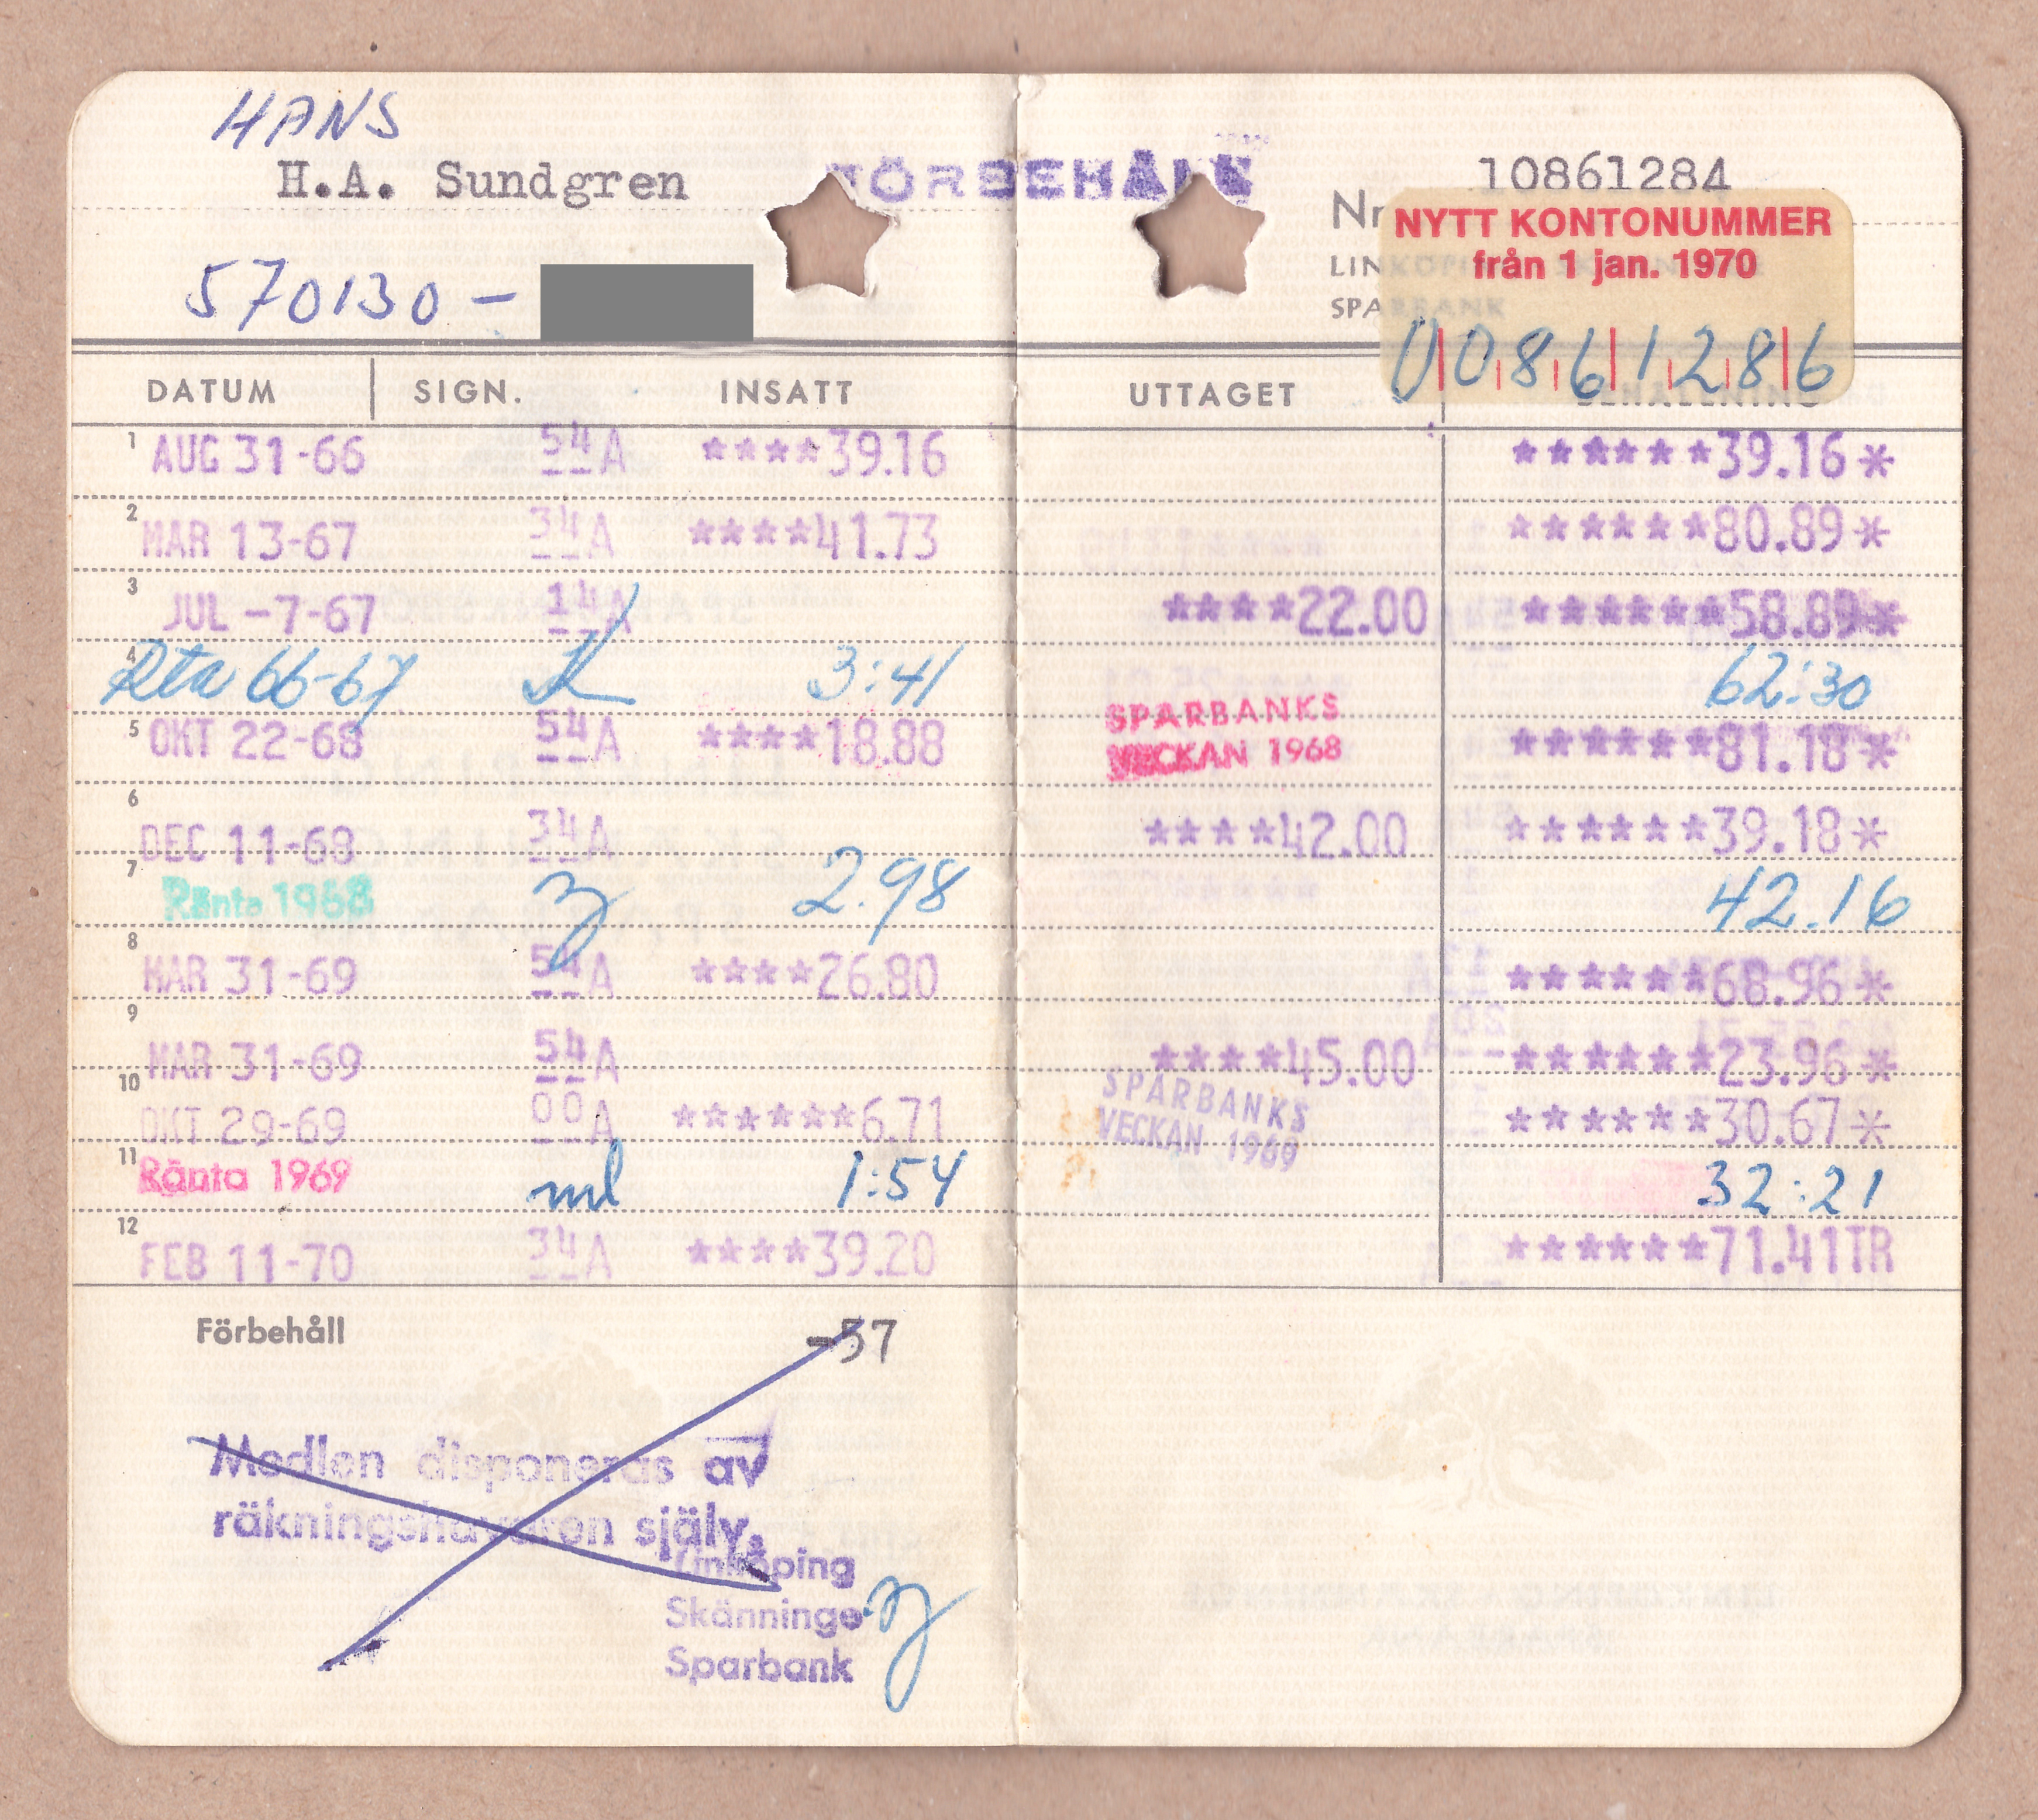 HANS
H.A. Sundgren
FÖRBEHÅLL
570130 –
Nr 10861284
LINKÖPING SKÄNNINGE
SPARBANK
NYTT KONTONUMMER
från 1 jan. 1970
00861286
DATUM SIGN. INSATT UTTAGET BEHÅLLNING
1 AUG 31-66 54 A ****39.16 ******39.16*
2 MAR 13-67 34 A ****41.73 ******80.89*
3 JUL -7-67 14 A ****22.00 ******58.89*
4 Rta 66-67 3:41 62:30
5 OKT 22-68 54 A ****18.88 SPARBANKS VECKAN 1968 ******81.18*
6 DEC 11-68 34 A ****42.00 ******39.18*
7 Ränta 1968 2.98 42.16
8 MAR 31-69 54 A ****26.80 ******68.96*
9 MAR 31-69 54 A ****45.00 ******23.96*
10 OKT 29-69 00 A ******6.71 SPARBANKS VECKAN 1969 ******30.67*
11 Ränta 1969 ml 1:54 32:21
12 FEB 11-70 34 A ****39.20 ******71.41TR
Förbehåll
-57
Medlen disponeras av
räkningshavaren själv.
Linköping
Skänninge
Sparbank